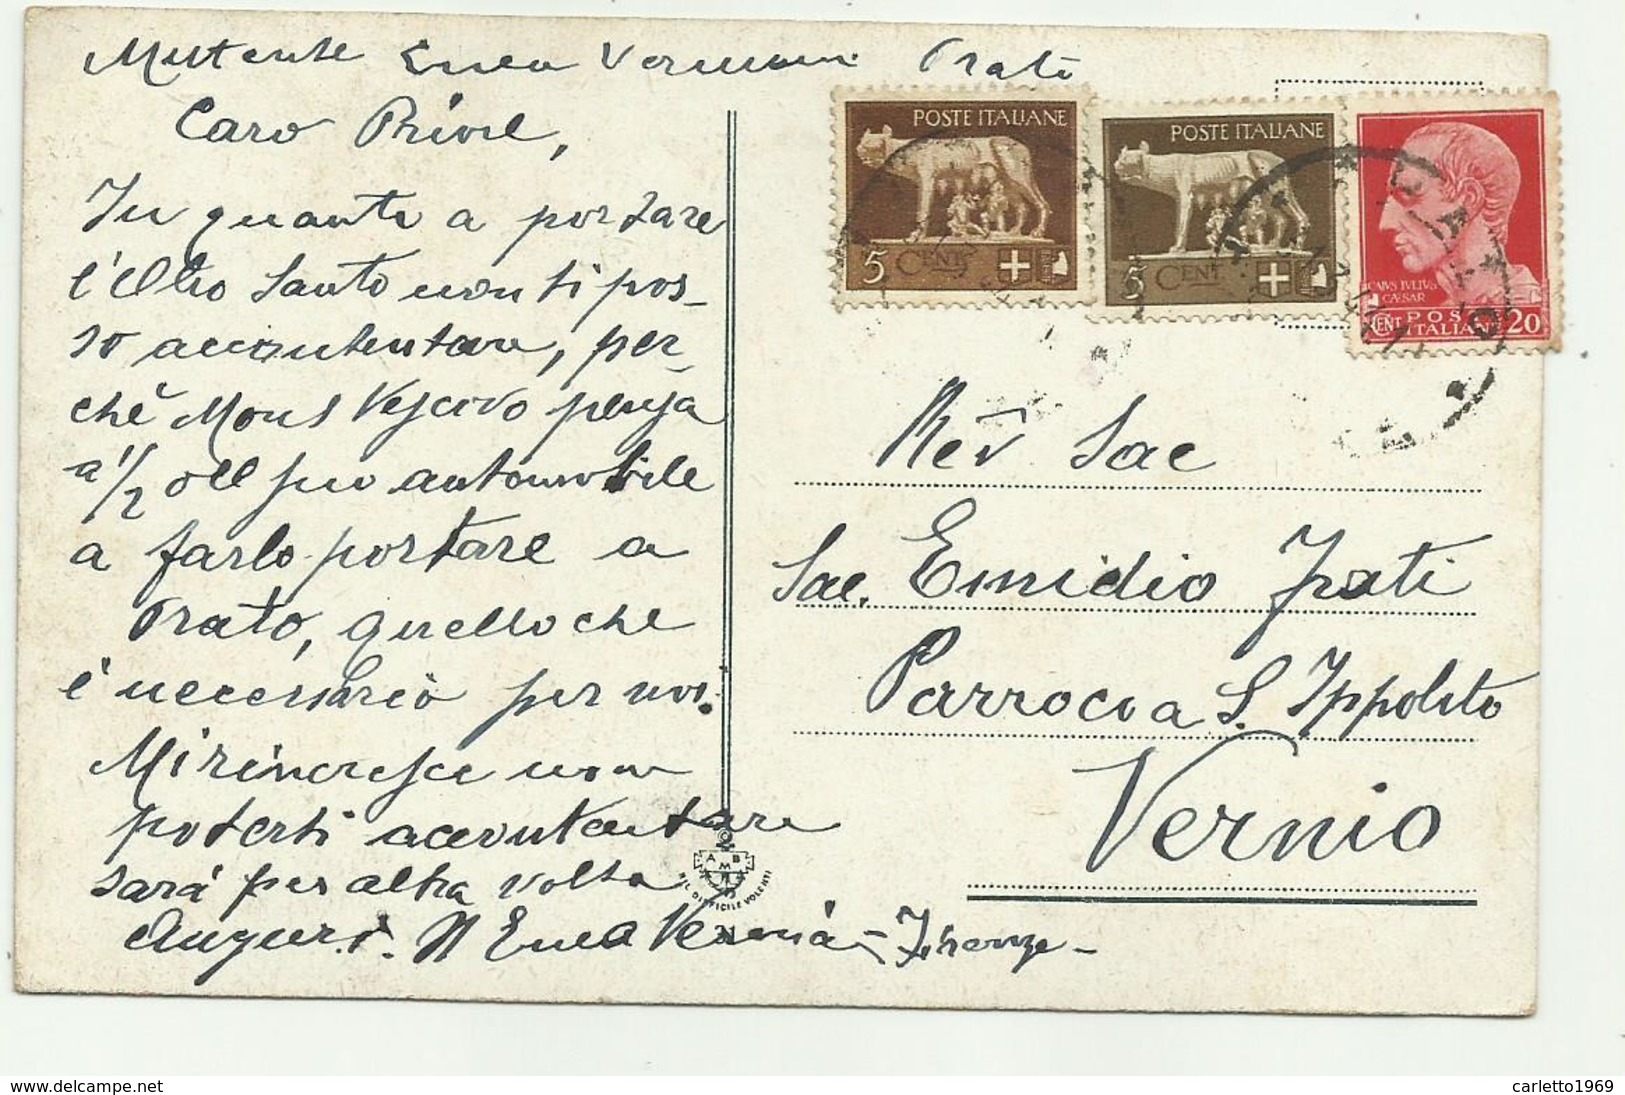 Mittente Enea Vermini Prato
Caro Priore,
In quanto a portare
l'Olio Santo non ti pos-
so accontentare, per-
chè Mons Vescovo pensa
a 1/2 dell suo automobile
a farlo portare a
Prato, quello che
è necessario per noi.
Mi rincresce non
poterti accontentare
sarà per altra volta
Auguri. Enea - Firenze -
POSTE ITALIANE
5 CENT
POSTE ITALIANE
5 CENT
CAIVS IVLIVS
CÆSAR
CENT POSTE ITALIANE 20
PRATO
Rev Sac
Sac. Emidio Prati
Parroco a S. Ippolito
Vernio
A M B
NIL DIFFICILE VOLENTI
delcampe.net
carletto1969